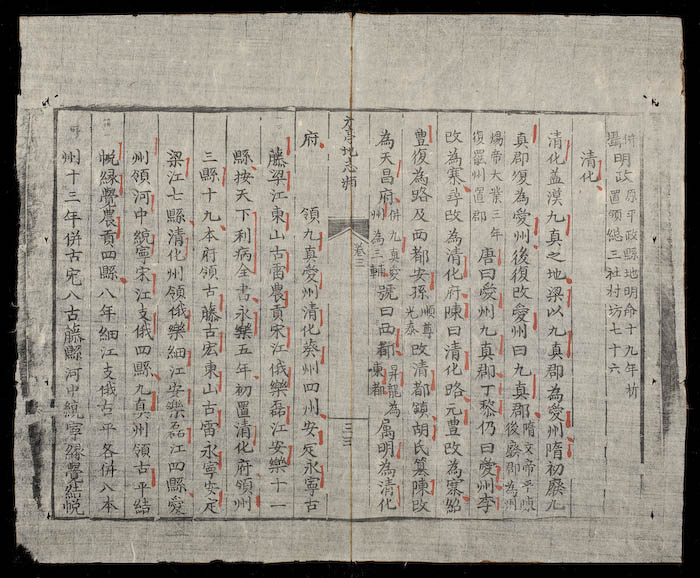 併疊明政原平政縣地明命十九年析
置領總三社村坊七十六
清化
清化盖漢九真之地梁以九真郡為愛州隋初廢九
真郡復為愛州後復改愛州曰九真郡隋文帝平陳後廢郡為州
煬帝大業三年復罷州置郡唐曰愛州九真郡丁黎仍曰愛州李
改為寨尋改為清化府陳曰清化路元豊改為寨紹
豊復為路及西都安孫順尊光泰改清都鎮胡氏篡陳改
為天昌府併九真愛州為三輔號曰西都昇龍為東都属明為清化
方亭地志類
卷三
三
府領九真愛州清化葵州四州安定永寧古
藤梁江東山古雷農貢宋江俄樂磊江安樂十一
縣按天下利病全書永樂五年初置清化府領州
三縣十九本府領古藤古宏東山古雷永寧安定
梁江七縣清化州領俄樂細江安樂磊江四縣愛
州領河中統寧宋江支俄四縣九真州領古平結
帨緣覺農貢四縣八年細江支俄古平各併入本
州十三年併古宏入古藤縣河中統寧緣覺結帨